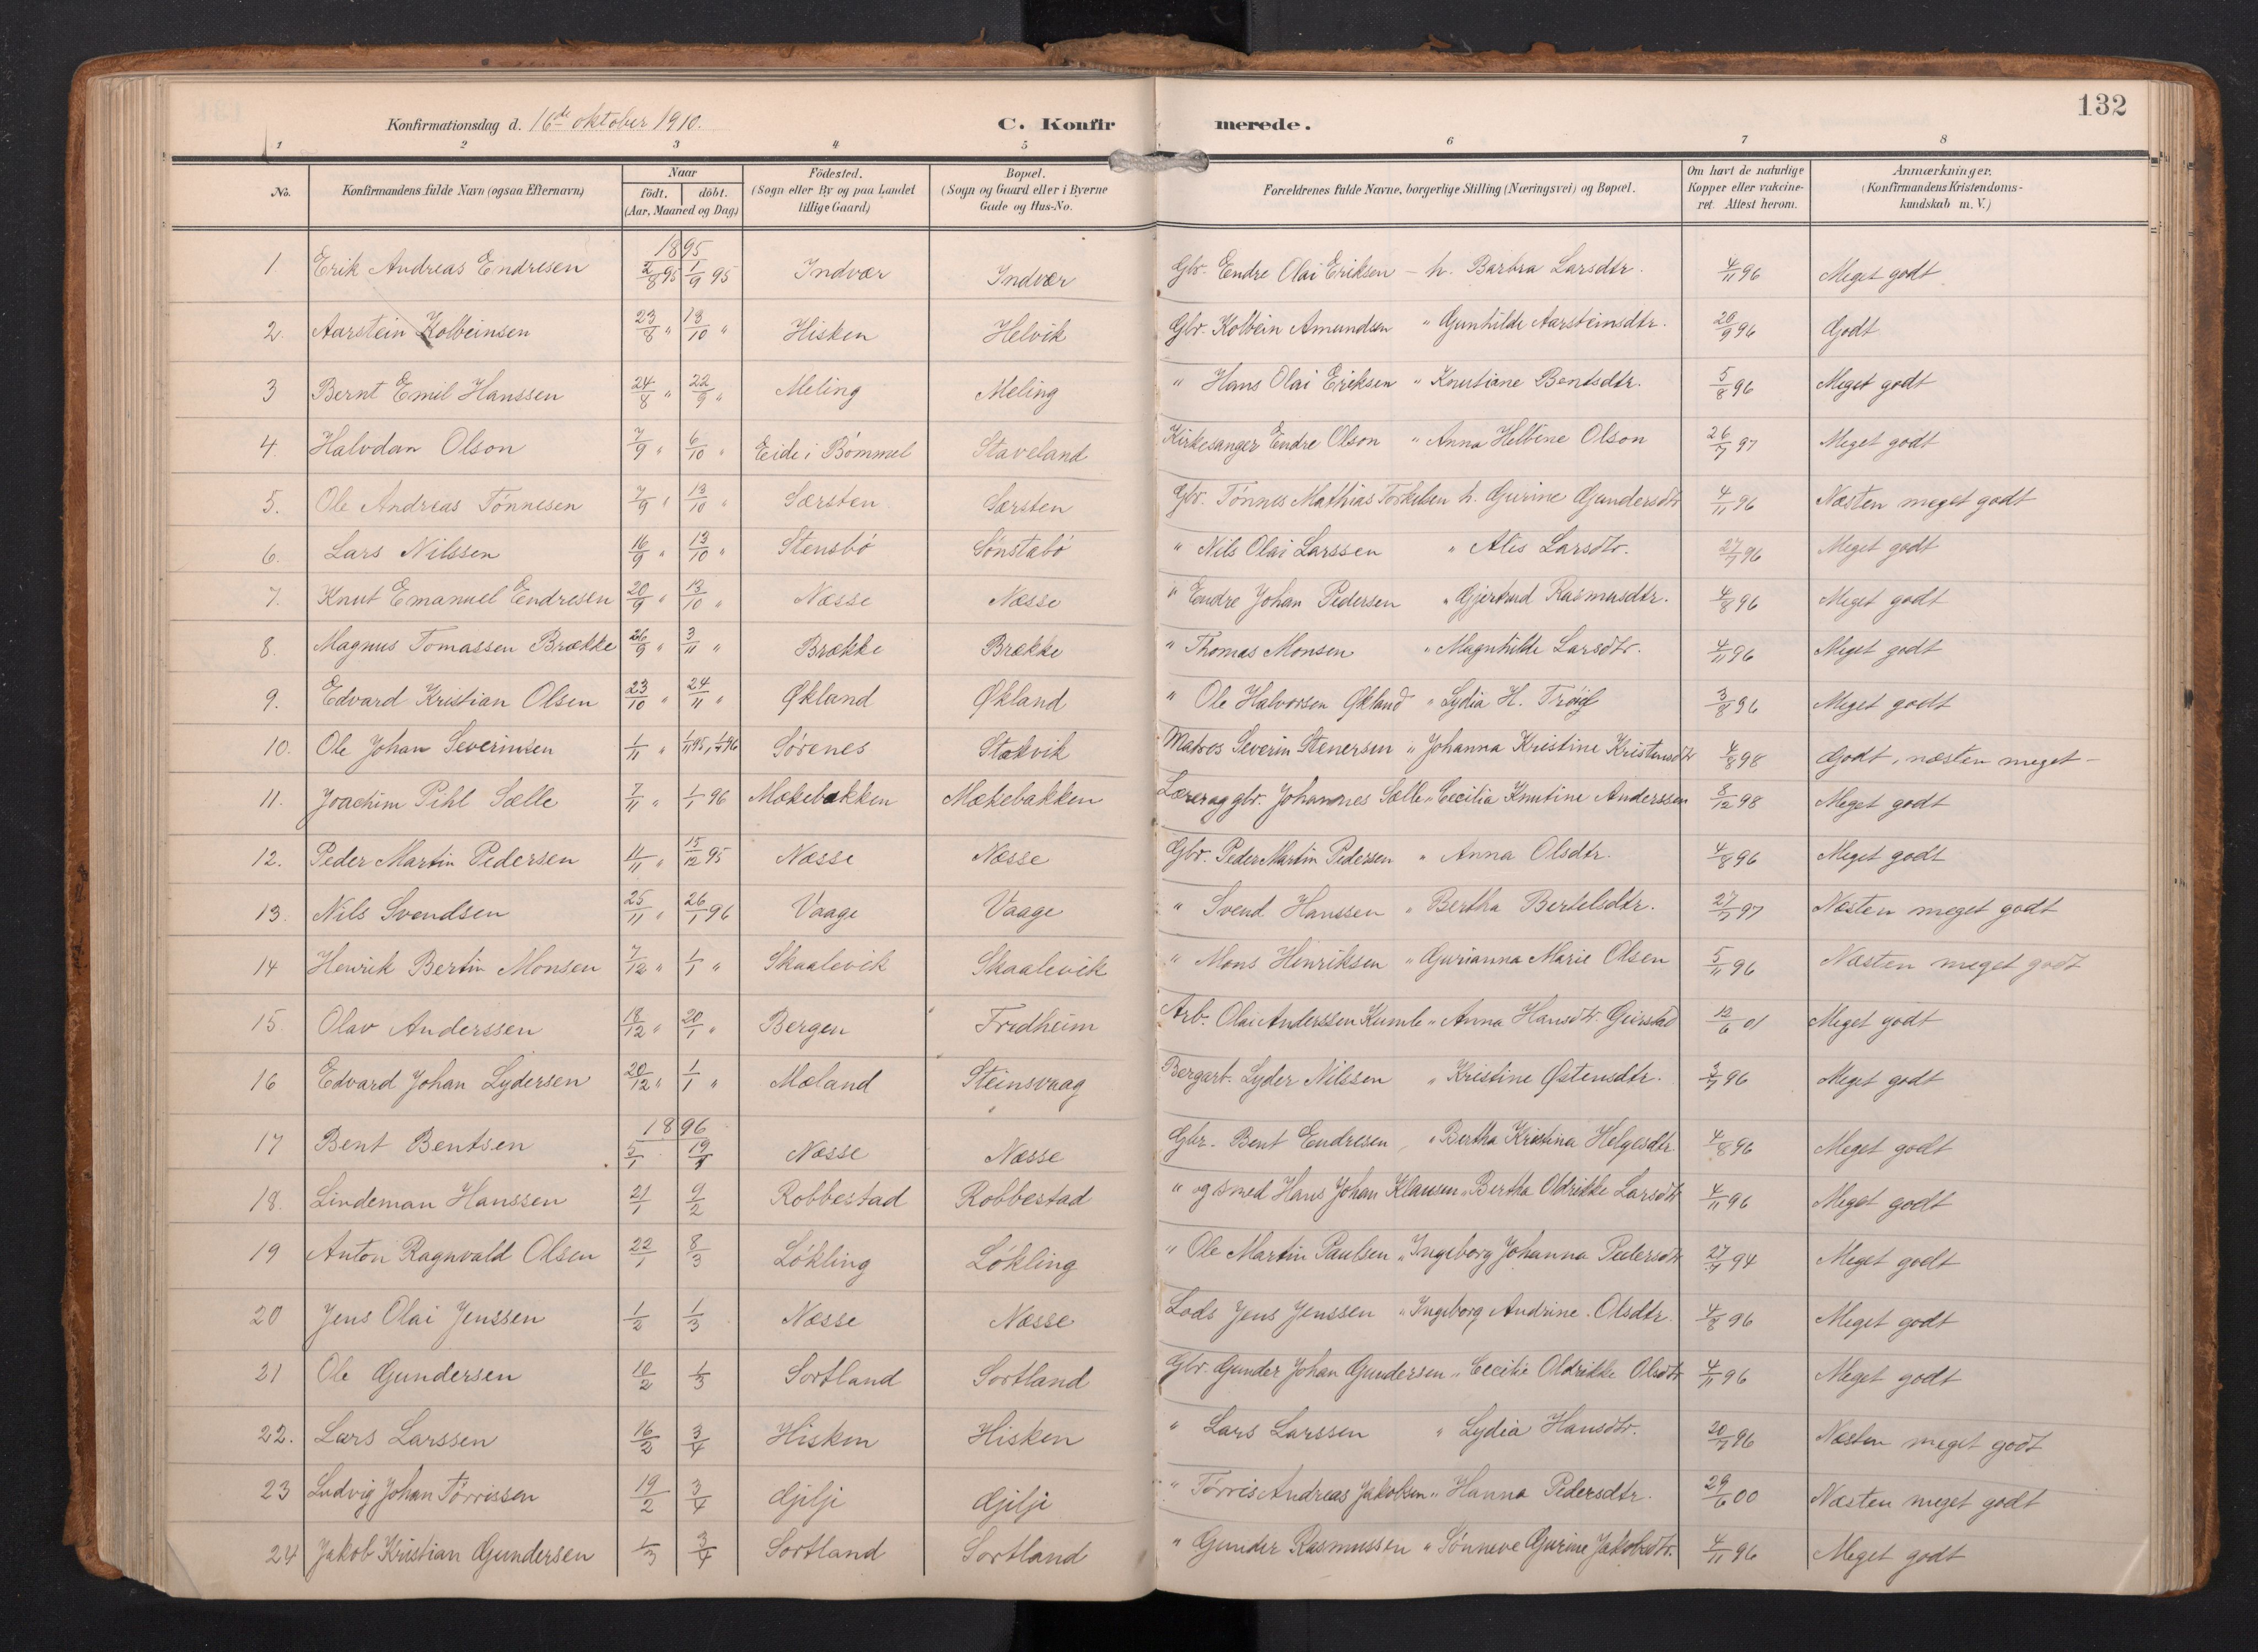 132
Konfirmationsdag d. 16de oktober 1910. C. Konfirmerede.
1 2 3 4 5 6 7 8
No. Konfirmandens fulde Navn (ogsaa Efternavn) Naar født. døbt. (Aar, Maaned og Dag) Fødested. (Sogn eller By og paa Landet tillige Gaard) Bopæl. (Sogn og Gaard eller i Byerne Gade og Hus-No. Forældrenes fulde Navne, borgerlige Stilling (Næringsvei) og Bopæl. Om havt de naturlige Kopper eller vakcineret. Attest herom. Anmærkninger. (Konfirmandens Kristendomskundskab m. V.)
1895
1. Erik Andreas Endresen 2/8 95 1/9 95 Indvær Indvær Gbr. Endre Olai Eriksen – h. Barbra Larsdtr. 4/11 96 Meget godt
2. Aarstein Kolbeinsen 23/8 " 18/10 " Hisken Helvik Gbr. Kolbein Amundsen " Gunhilde Aarsteinsdtr. 20/9 96 Godt
3 Bernt Emil Hanssen 24/8 " 22/9 " Meling Meling " Hans Olai Eriksen " Knutiane Bentsdtr. 5/8 96 Meget godt
4. Halvdan Olson 7/9 " 6/10 " Eide i Bømmel Staveland Kirkesanger Endre Olson " Anna Helbine Olson 26/7 97 Meget godt
5. Ole Andreas Tønnesen 7/9 " 13/10 " Særsten Særsten Gbr. Tønnes Mathias Torkelsen h. Gurine Gundersdtr 4/11 96 Næsten meget godt
6. Lars Nilssen 16/9 " 13/10 " Stensbø Sønstabø " Nils Olai Larssen " Alis Larsdtr. 27/7 96 Meget godt
7. Knut Emanuel Endresen 20/9 " 13/10 " Næsse Næsse " Endre Johan Pedersen " Gjertrud Rasmusdtr. 4/8 96 Meget godt
8. Magnus Tomassen Brække 26/9 " 3/11 " Brække Brække " Thomas Monsen " Magnhilde Larsdtr. 4/11 96 Meget godt
9. Edvard Kristian Olsen 23/10 " 24/11 " Økland Økland " Ole Halvorsen Økland " Lydia H. 3/8 96 Meget godt
10. Ole Johan Severinsen 1/11 " 1/11 95, 96 Sørenes Stokvik Matros Severin Stenersen " Johanna Kristine Kristensdtr 4/8 98 Godt, næsten meget –
11. Joachim Pihl Sælle 7/11 " 1/1 96 Mækebakken Mækebakken Lærer og gbr. Johannes Sælle " Cecilia Knutine Anderssen 8/12 98 Meget godt
12. Peder Martin Pedersen 11/11 " 15/12 95 Næsse Næsse Gbr. Peder Martin Pedersen " Anna Olsdtr. 4/8 96 Meget godt
13. Nils Svendsen 25/11 " 26/1 96 Vaage Vaage " Svend Hanssen " Bertha Bertelsdtr. 27/7 97 Næsten meget godt
14 Henrik Bertin Monsen 7/12 " 1/1 " Skaalevik Skaalevik " Mons Henriksen " Gurianna Marie Olsen 5/11 96 Næsten meget godt
15 Olav Anderssen 18/12 " 20/1 " Bergen Fredheim Arb. Olai Anderssen Kumle " Anna Hansdtr. Geirstad 12/6 01 Meget godt
16 Edvard Johan Lydersen 20/12 " 1/1 " Mæland Steinsvaag Bergarb. Lyder Nilssen " Kristine Østensdtr. 3/7 96 Meget godt
1896
17 Bent Bentsen 5/1 19/1 Næsse Næsse Gbr. Bent Endresen " Bertha Kristina Helgesdtr 4/8 96 Meget godt
18. Lindeman Hanssen 21/1 9/2 Robbestad Robbestad " og smed Hans Johan Klausen " Bertha Oldrikke Larsdtr 4/11 96 Meget godt
19 Anton Ragnvald Olsen 22/1 8/3 Løkling Løkling " Ole Martin Paulsen " Ingeborg Johanna Pedersdtr 27/7 94 Meget godt
20 Jens Olai Jenssen 1/2 1/3 Næsse Næsse Lods Jens Jenssen " Ingeborg Andrine Olsdtr. 4/8 96 Meget godt
21 Ole Gundersen 10/2 1/3 Sortland Sortland Gbr. Gunder Johan Gundersen " Cecilie Oldrikke Olsdtr 4/11 96 Meget godt
22. Lars Larssen 16/2 3/4 Hisken Hisken " Lars Larssen " Lydia Hansdtr. 20/7 96 Næsten meget godt
23 Ludvig Johan Tørrissen 19/2 3/4 Gjilje Gjilje " Tørris Andreas Jakobsen " Hanna Pedersdtr. 29/6 00 Næsten meget godt
24 Jakob Kristian Gundersen 1/3 3/4 Sortland Sortland " Gunder Rasmussen " Sønneve Gurine Jakobsdtr. 4/11 96 Meget godt